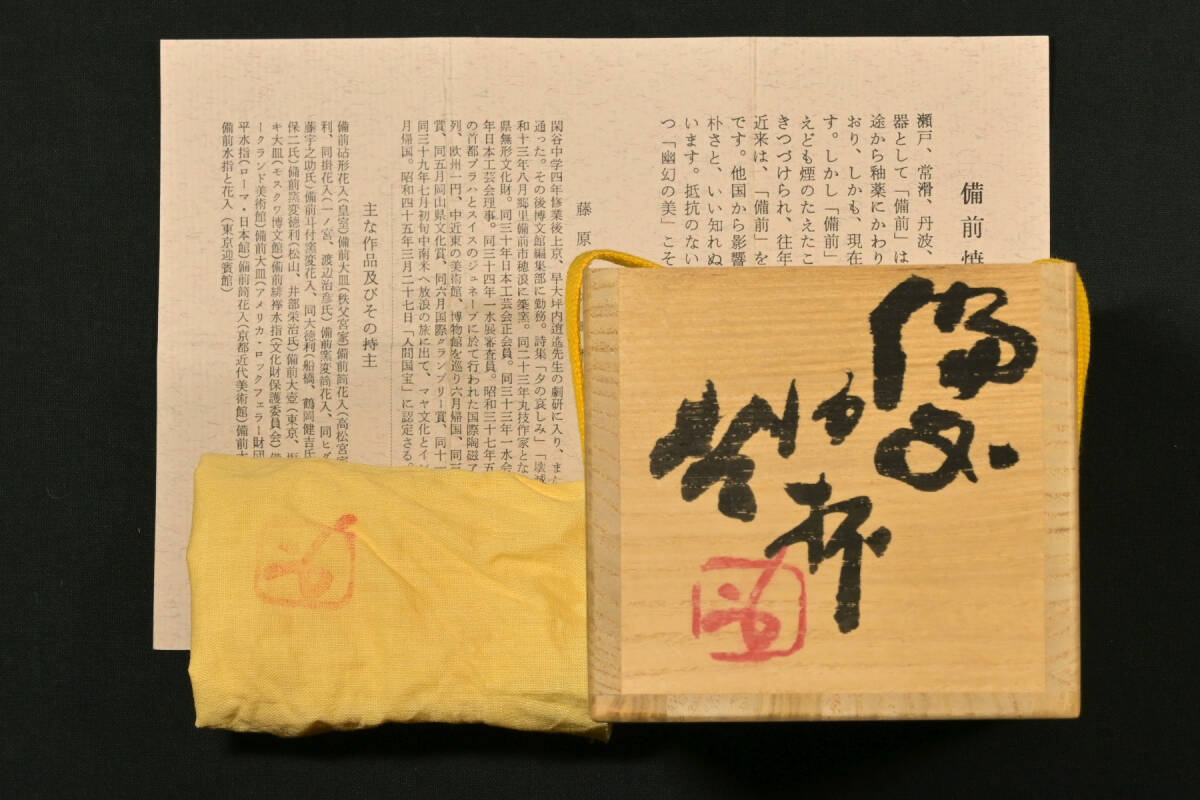 備前焼
瀬戸、常滑、丹波、
器として「備前」は
途から釉薬にかわり
おり、しかも、現在
す。しかし「備前」
えども煙のたえたこ
きつづけられ、往年
近来は、「備前」を
です。他国から影響
朴さと、いい知れぬ
います。抵抗のない
つ「幽幻の美」こそ
藤原
閑谷中学四年修業後上京、早大坪内逍遙先生の劇研に入り、また
通った。その後博文館編集部に勤務。詩集「夕の哀しみ」「壊滅
和十三年八月郷里備前市穂浪に築窯。同二十三年丸技作家とな
県無形文化財。同三十年日本工芸会正会員。同三十三年一水会
年日本工芸会理事。同三十四年一水展審査員。昭和三十七年五
の首都プラハとスイスのジュネーブに於て行われた国際陶磁ア
列、欧州一円、中近東の美術館、博物館を巡り六月帰国、同三
賞、同五月岡山県文化賞、同六月国際グランプリー賞、同十一
同三十九年七月初旬中南米へ放浪の旅に出て、マヤ文化とイン
月帰国。昭和四十五年三月二十七日「人間国宝」に認定さる。
主な作品及びその持主
備前砧形花入(皇室)備前大皿(秩父宮家)備前筒花入(高松宮家
利、同掛花入(一ノ宮、渡辺治彦氏)備前窯変筒花入、同ヒダ
藤宇之助氏)備前耳付窯変花入、同大徳利(船橋、鶴岡健吉氏
保二氏)備前窯変徳利(松山、井部栄治氏)備前大壺(東京、
キ大皿(モスクワ博文館)備前緋襷水指(文化財保護委員会)備
ークランド美術館)備前大皿(アメリカ・ロックフェラー財団
平水指(ローマ・日本館)備前筒花入(京都近代美術館)備前大
備前水指と花入(東京迎賓館)
備前
酒杯
啓